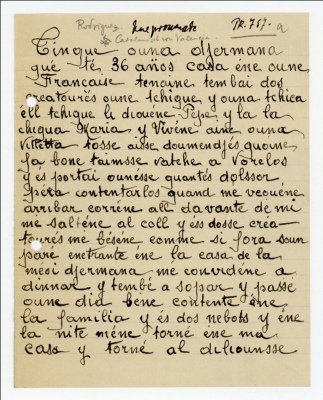 Rodriguez
Inapropiate
PR. 757.
a
Catalan
Valencia
Tinque ouna djermana
qué té 36 años casa éne oune
Française tenaine tembai dos
creatourés oune tchique y ouna tchica
éll tchique le diouene Pépe y la la
chiqua Maria y Vivéne aine ouna
Viletta tosse aisse doumendjés quoune
fa bone taimsse vatche a Vorelos
y és portai ounésse quantés dolssor
Péra contentarlos quand me veouéne
arribar corréne all davante de mi
me salténe al coll y éss dosse créa-
tourés me bésene comme si fora soun
paré enetrante éne la casa de la
méoi djermana me convidéne a
dinnar y tembé a sopar y passé
oune dia bene contente éne
la familia y és dos nebots y éne
la nite méne torné éne ma
casa y torné al dilounsse